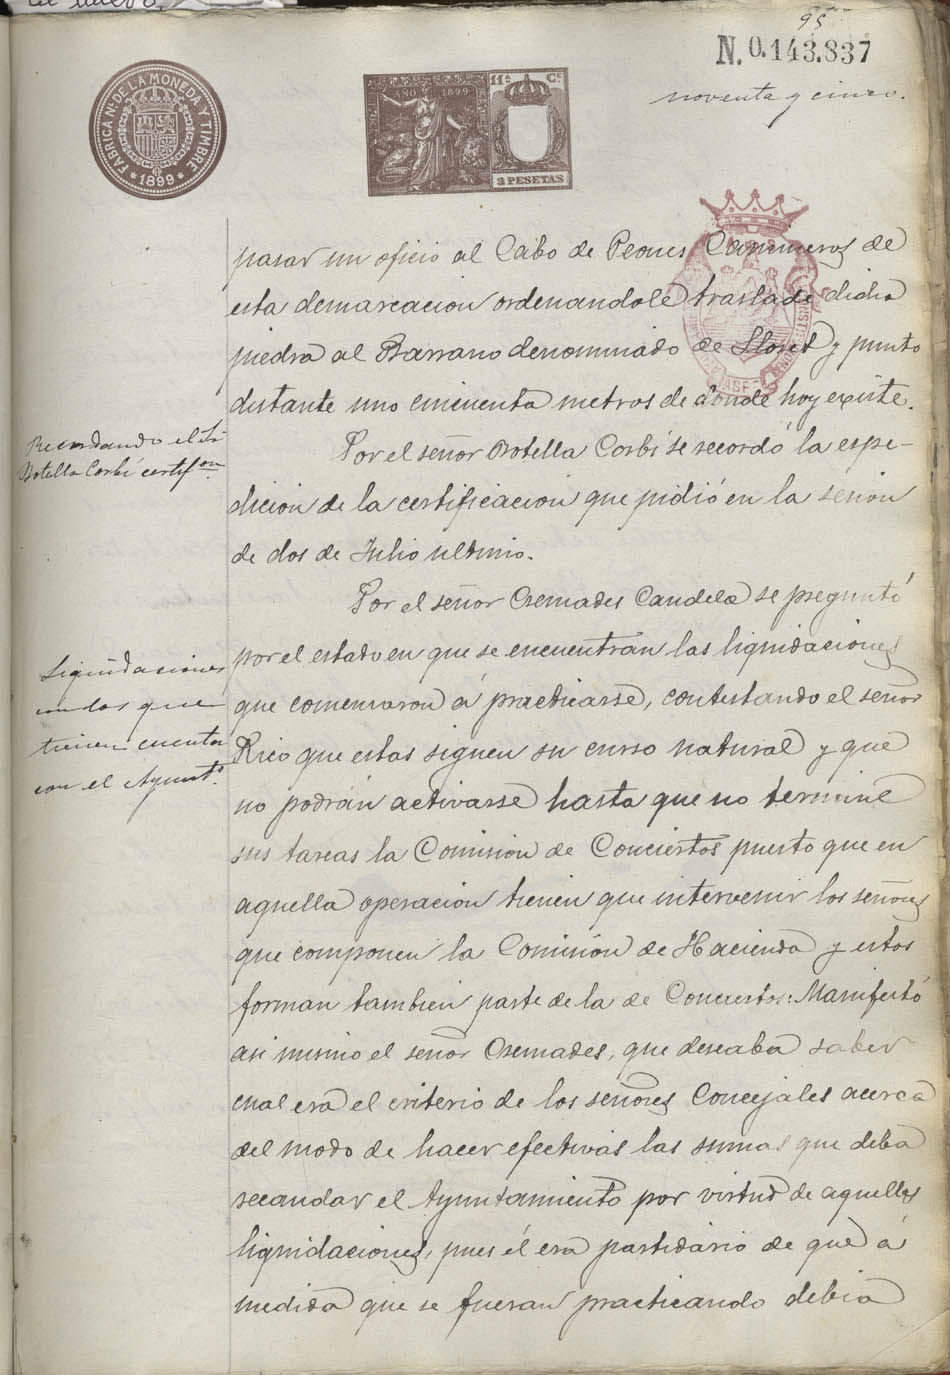 95
N. 0.143.837
noventa y cinco.
FABRICA Nl. DE LA MONEDA Y TIMBRE
* 1899 *
AÑO 1899
11ª Cª
2 PESETAS
pasar un oficio al Cabo de Peones Camineros de
esta demarcacion ordenandole traslade dicha
piedra al Barranco denominado de Lloret y punto
distante uno cincuenta metros de donde hoy existe.
Recordando el Sr
Botella Corbí certifon.
Por el señor Botella Corbí se recordó la espe-
dicion de la certificacion que pidió en la sesion
de dos de Julio ultimo.
Por el señor Cremades Candela se preguntó
Liquidaciones
con los que
tienen cuentas
con el Ayuntº.
por el estado en que se encuentran las liquidaciones
que comenzaron á practicarse, contestando el señor
Rico que estas siguen su curso natural y que
no podrán activarse hasta que no termine
sus tareas la Comision de Conciertos puesto que en
aquella operacion tienen que intervenir los señores
que componen la Comision de Hacienda y estos
forman tambien parte de la de Conciertos: Manifestó
asi mismo el señor Cremades, que deseaba saber
cual era el criterio de los señores Concejales acerca
del modo de hacer efectivas las sumas que deba
recaudar el Ayuntamiento por virtud de aquellas
liquidaciones, pues él era partidario de que á
medida que se fueran practicando debia